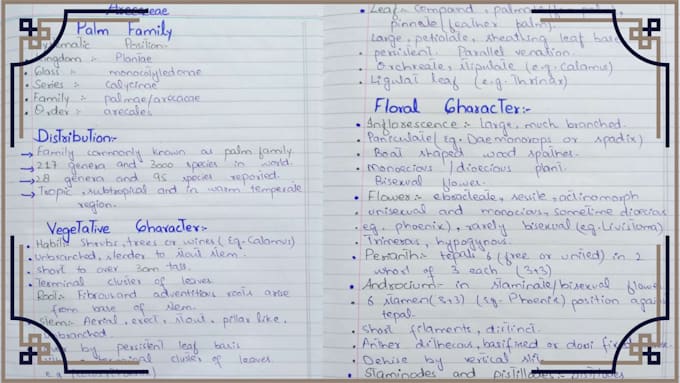 Arecaceae
Palm Family
Systematic Position:-
Kingdom :- Plantae
Class :- monocotyledonae
Series :- calycinae
Family :- palmae/arecaceae
Order :- arecales
Distribution:-
→ Family commonly known as palm family.
→ 217 genera and 3000 species in world.
→ 28 genera and 95 species reported.
→ Tropic, subtropical and in warm temperate
region.
Vegetative Character:-
Habit:- Shrubs, trees or vines (Eg. Calamus)
unbranched, slender to stout stem.
short to over 30m tall.
Terminal cluster of leaves.
Root:- Fibrous and adventitious roots arise
from base of stem.
Stem:- Aerial, erect, stout, pillar like,
unbranched
by persistent leaf basis
terminal cluster of leaves.
Leaf:- Compound, palmate
pinnate (feather palm).
Large, petiolate, sheathing leaf base
persistent. Parallel venation.
Orchreate, stipulate (e.g. Calamus)
Ligulat leaf (e.g. Thrinax)
Floral Character:-
Inflorescence :- Large, much branched.
Paniculate (Eg. Daemonorops or spadix)
Boat shaped wood spathes.
Monoecious / dioecious plant.
Bisexual flower.
Flower:- ebracteate, sessile, actinomorph
unisexual and monocious, sometime diorcious
eg. phoenix), rarely bisexual (eg. Livistona)
Trimerous, hypogynous.
Perianth:- tepals 6 (free or united) in 2
whorl of 3 each (3+3)
Androcium:- in staminate/bisexual flower
6 stamen (3+3) (Eg. Phoenix) position again
tepal.
Short filaments, distinct.
Anther dithecous, basifixed or dorsi fixed
Dehise by vertical slit
Staminodes and pistillodes:-